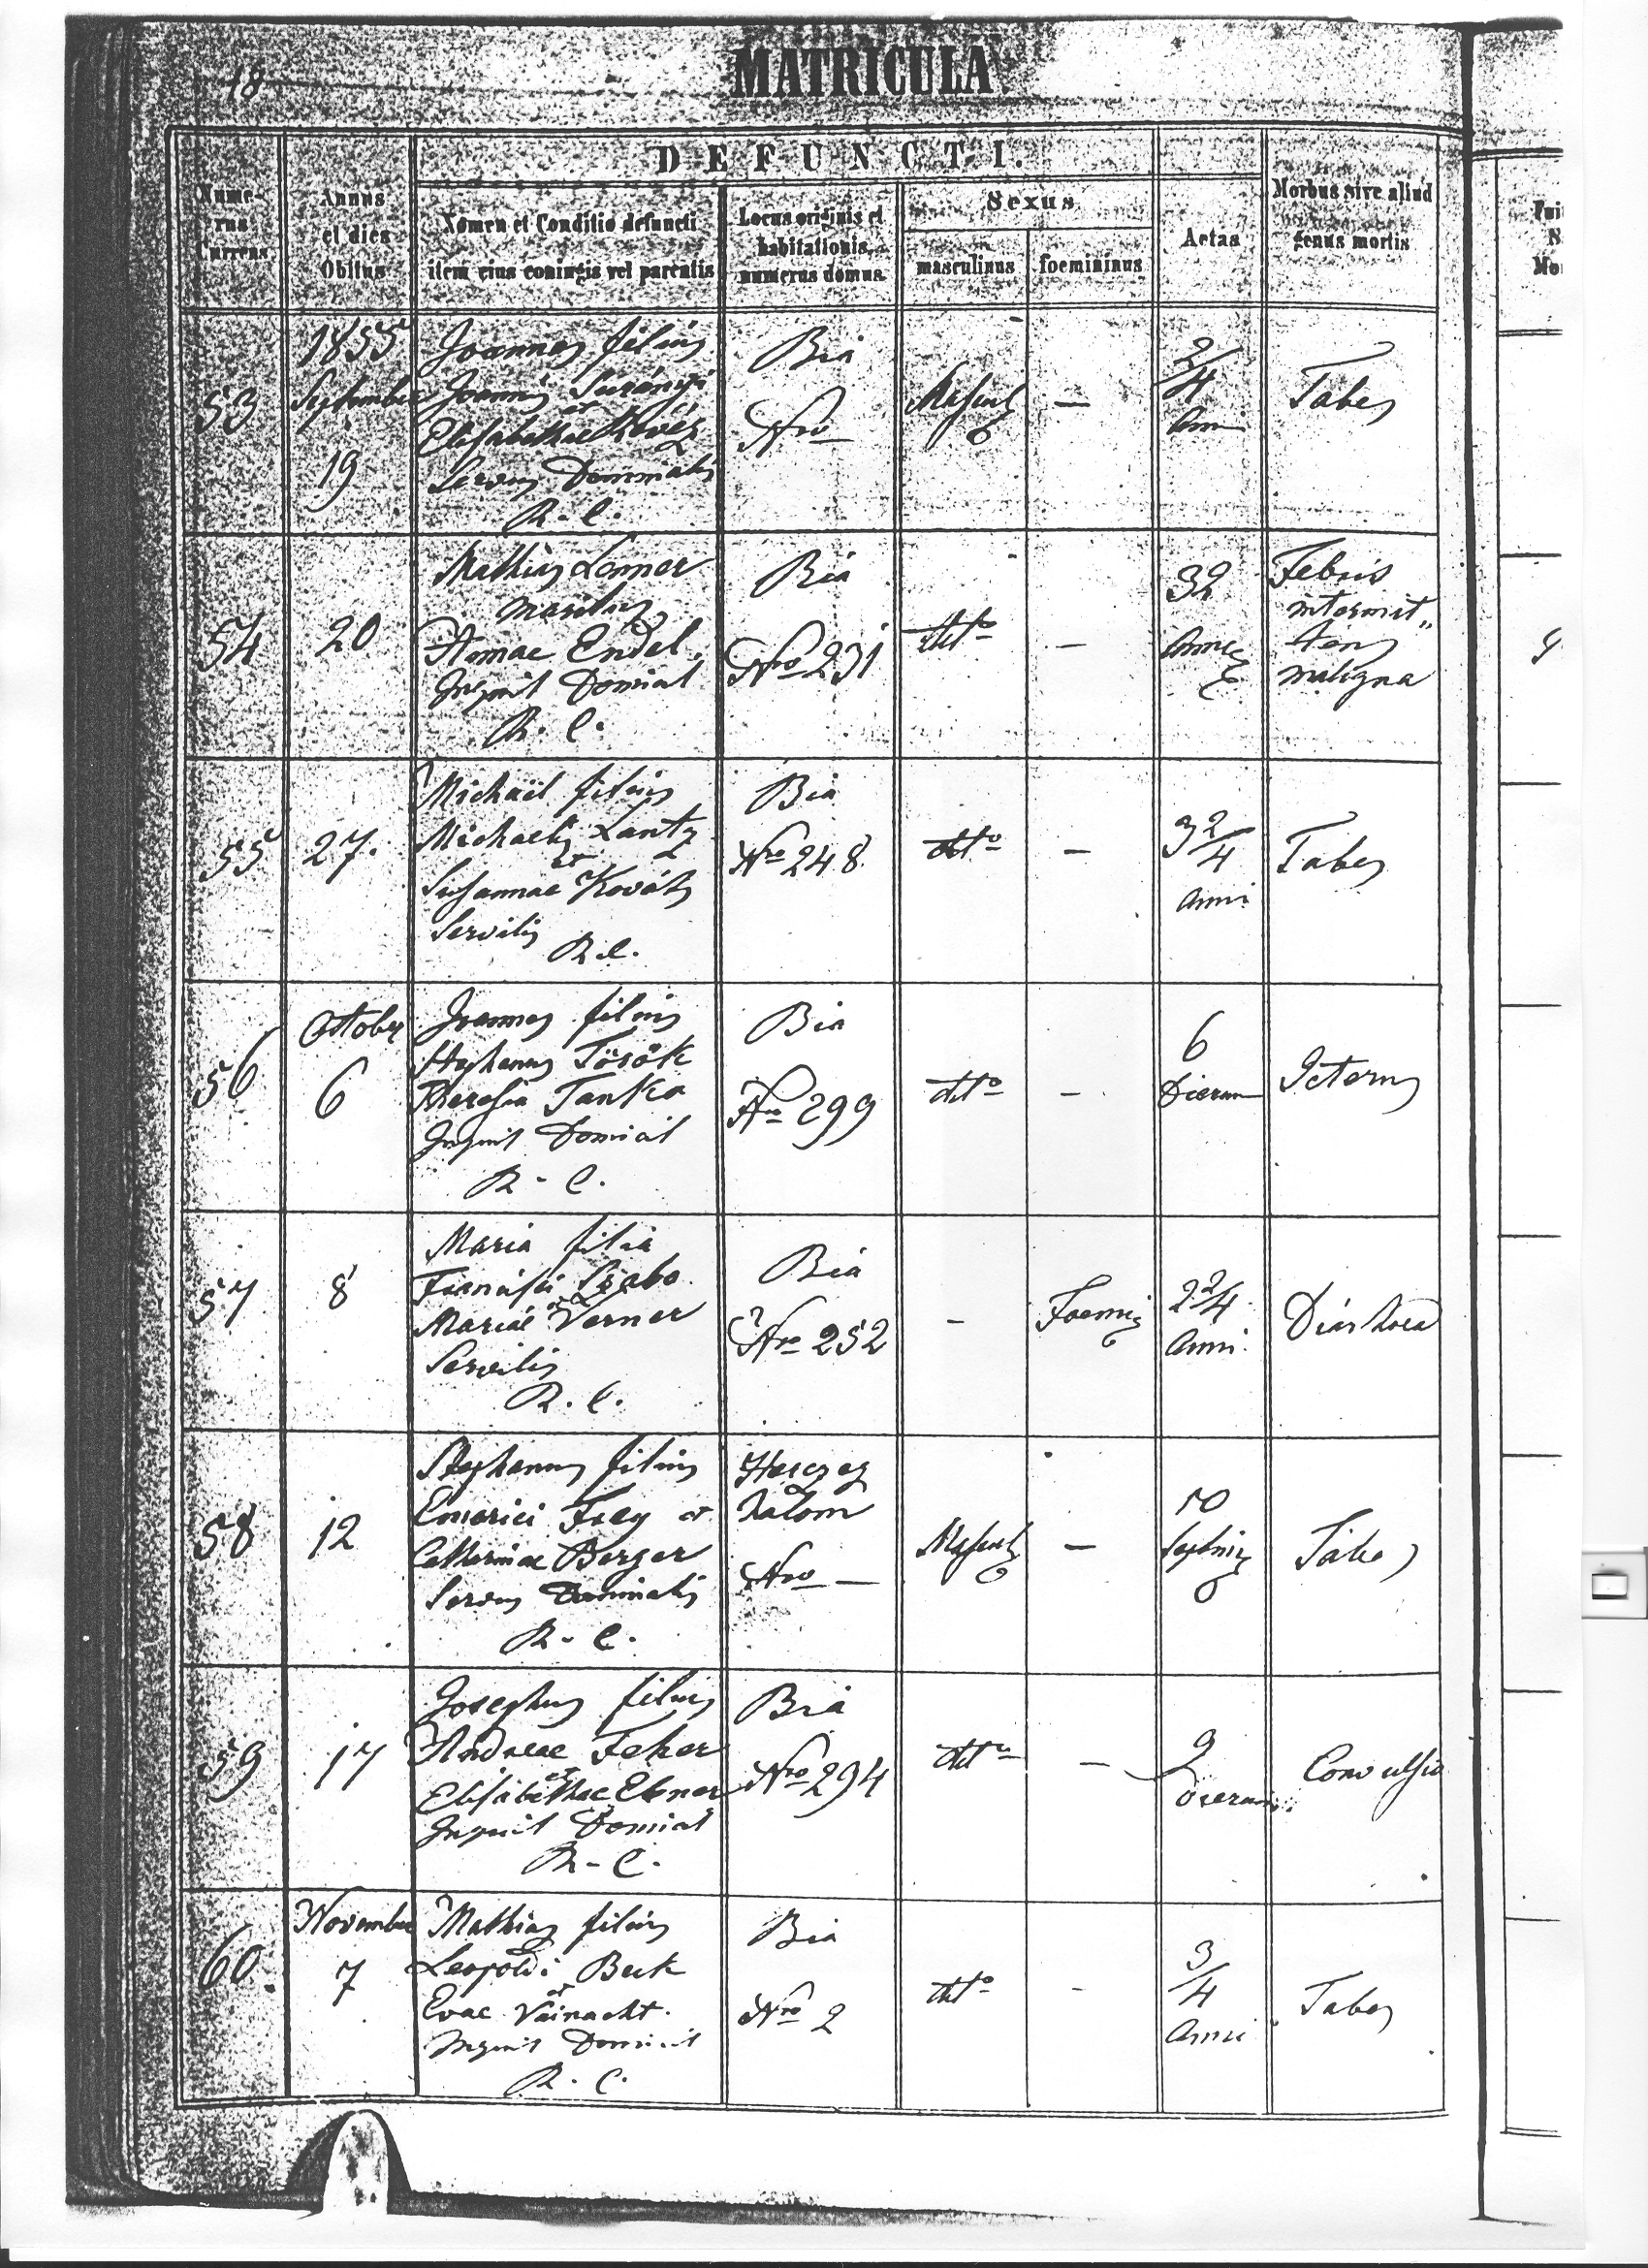 18
MATRICULA
DEFUNCTI.
Nume-
rus
Currens
Annus
et dies
Obitus
Nomen et Conditio defuncti
item eius coniugis vel parentis
Locus originis et
habitationis,
numerus domus
Sexus
masculinus
foemininus
Aetas
Morbus sive aliud
genus mortis
53
1855
September
19
Joannes filius
Joannis Surányi
et
Elisabethae Kövér
Servus Dominalis
R. C.
Bia
Nro
Mascul
—
2/4
Anni
Tabes
54
20
Mathias Lonner
maritus
Annae Endel
Inquil Domial
R. C.
Bia
Nro 231
dtto
—
32
Annor
Febris
intermit„
tens
maligna
55
27.
Michaël filius
Michaelis Lantz
et
Susannae Kováts
Servilis
R. C.
Bia
Nro 248
dtto
—
3 2/4
Anni
Tabes
56
October
6
Joannes filius
Stephanus Török
Theresia Tanka
Inquil Domial
R. C.
Bia
Nro 299
dtto
—
6
Dierum
Icterus
57
8
Maria filia
Francisci Szabo
et
Mariae Verner
Servilis
R. C.
Bia
Nro 252
—
Foemi
2 2/4
Anni
Diarrhoea
58
12
Stephanus filius
Emerici Frey et
Catharinae Berger
Servus Dominalis
R. C.
Herczeg
halom
Nro —
Mascul
—
10
Septim
Tabes
59
17
Josephus filius
Andreae Feher
et
Elisabethae Ebner
Inquil Domial
R. C.
Bia
Nro 294
dtto
—
9
Dierum
Convulsio
60
November
7
Mathias filius
Leopoldi Beck
et
Evae Vainacht.
Inquil Domial
R. C.
Bia
Nro 2
dtto
—
3/4
Anni
Tabes